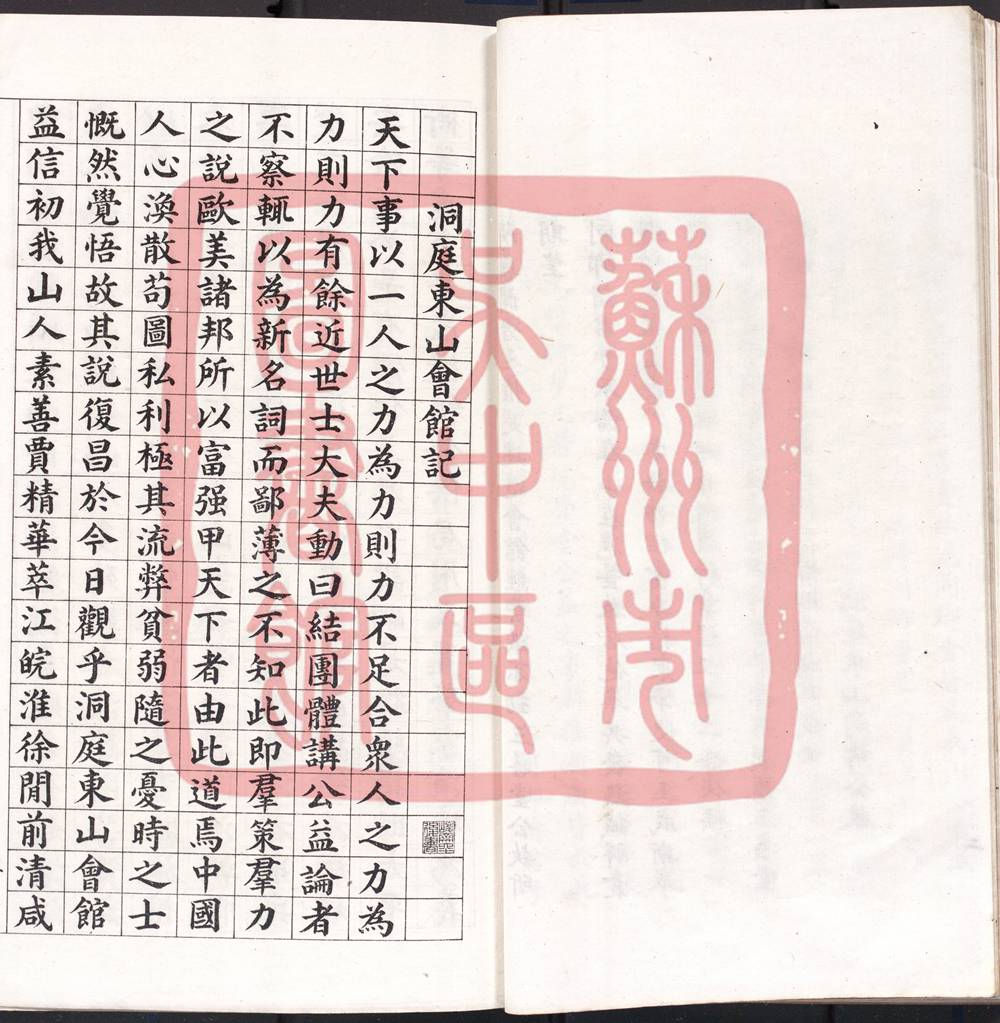 洞庭東山會館記
天下事以一人之力為力則力不足合衆人之力為
力則力有餘近世士大夫動曰結團體講公益論者
不察輒以為新名詞而鄙薄之不知此即羣策羣力
之說歐美諸邦所以富强甲天下者由此道焉中國
人心渙散苟圖私利極其流弊貧弱隨之憂時之士
慨然覺悟故其說復昌於今日觀乎洞庭東山會館
益信初我山人素善賈精華萃江皖淮徐間前清咸
蘇州市
吴中區
圖書館